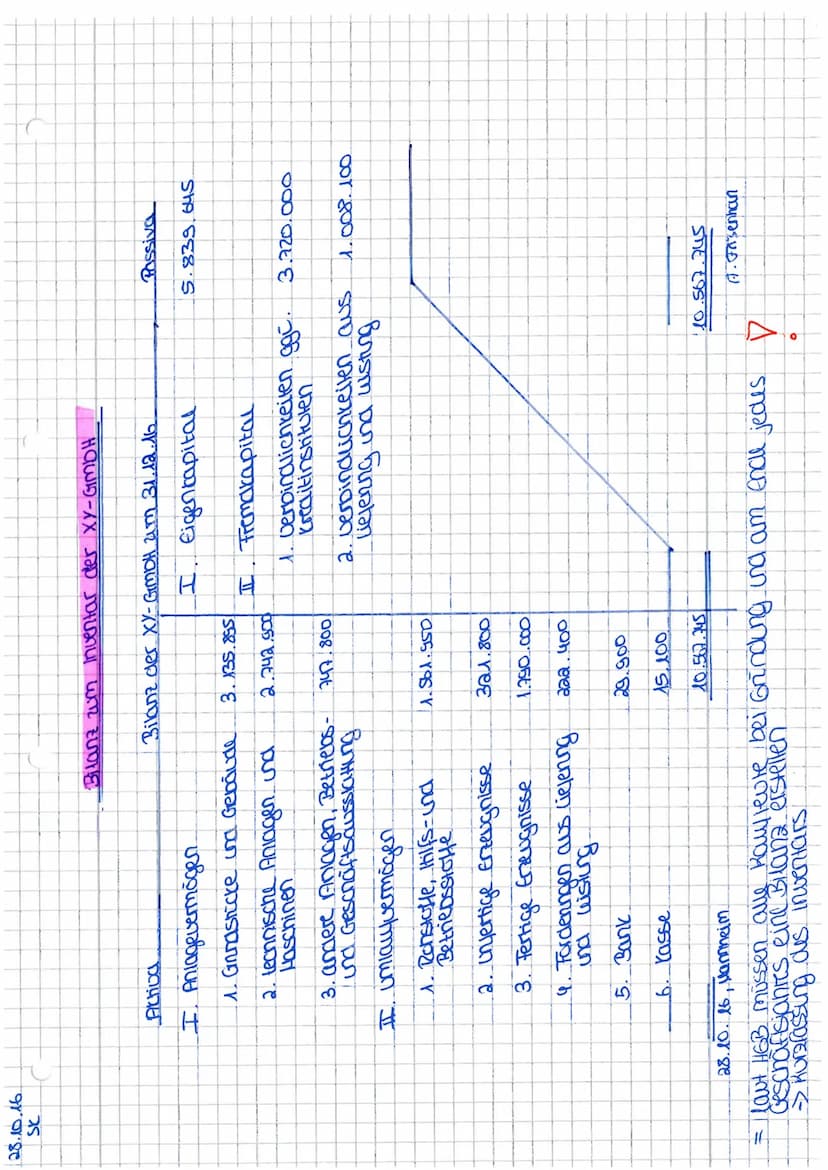 28.10.16
SK
Bilanz zum Inventar der XY-GmbH
Aktiva Bilanz der XY-GmbH zum 31.12.16 Passiva
I. Anlagevermögen
1. Grundstücke und Gebäude 3.135.855
2. technische Anlagen und 2.742.500
Maschinen
3. andere Anlagen, Betriebs- 747.800
und Geschäftsausstattung
II. Umlaufvermögen
1. Rohstoffe, Hilfs- und 1.561.550
Betriebsstoffe
2. Unfertige Erzeugnisse 321.800
3. Fertige Erzeugnisse 1.790.000
4. Forderungen aus Lieferung 222.400
und Leistung
5. Bank 29.900
6. Kasse 15.100
10.567.745
I. Eigenkapital 5.839.645
II. Fremdkapital
1. Verbindlichkeiten ggü. 3.720.000
Kreditinstituten
2. Verbindlichkeiten aus 1.008.100
Lieferung und Leistung
10.567.745
28.10.16, Mannheim
= laut HGB müssen alle Kaufleute bei Gründung und am Ende jedes
Geschäftsjahres eine Bilanz erstellen
-> Kurzfassung des Inventars